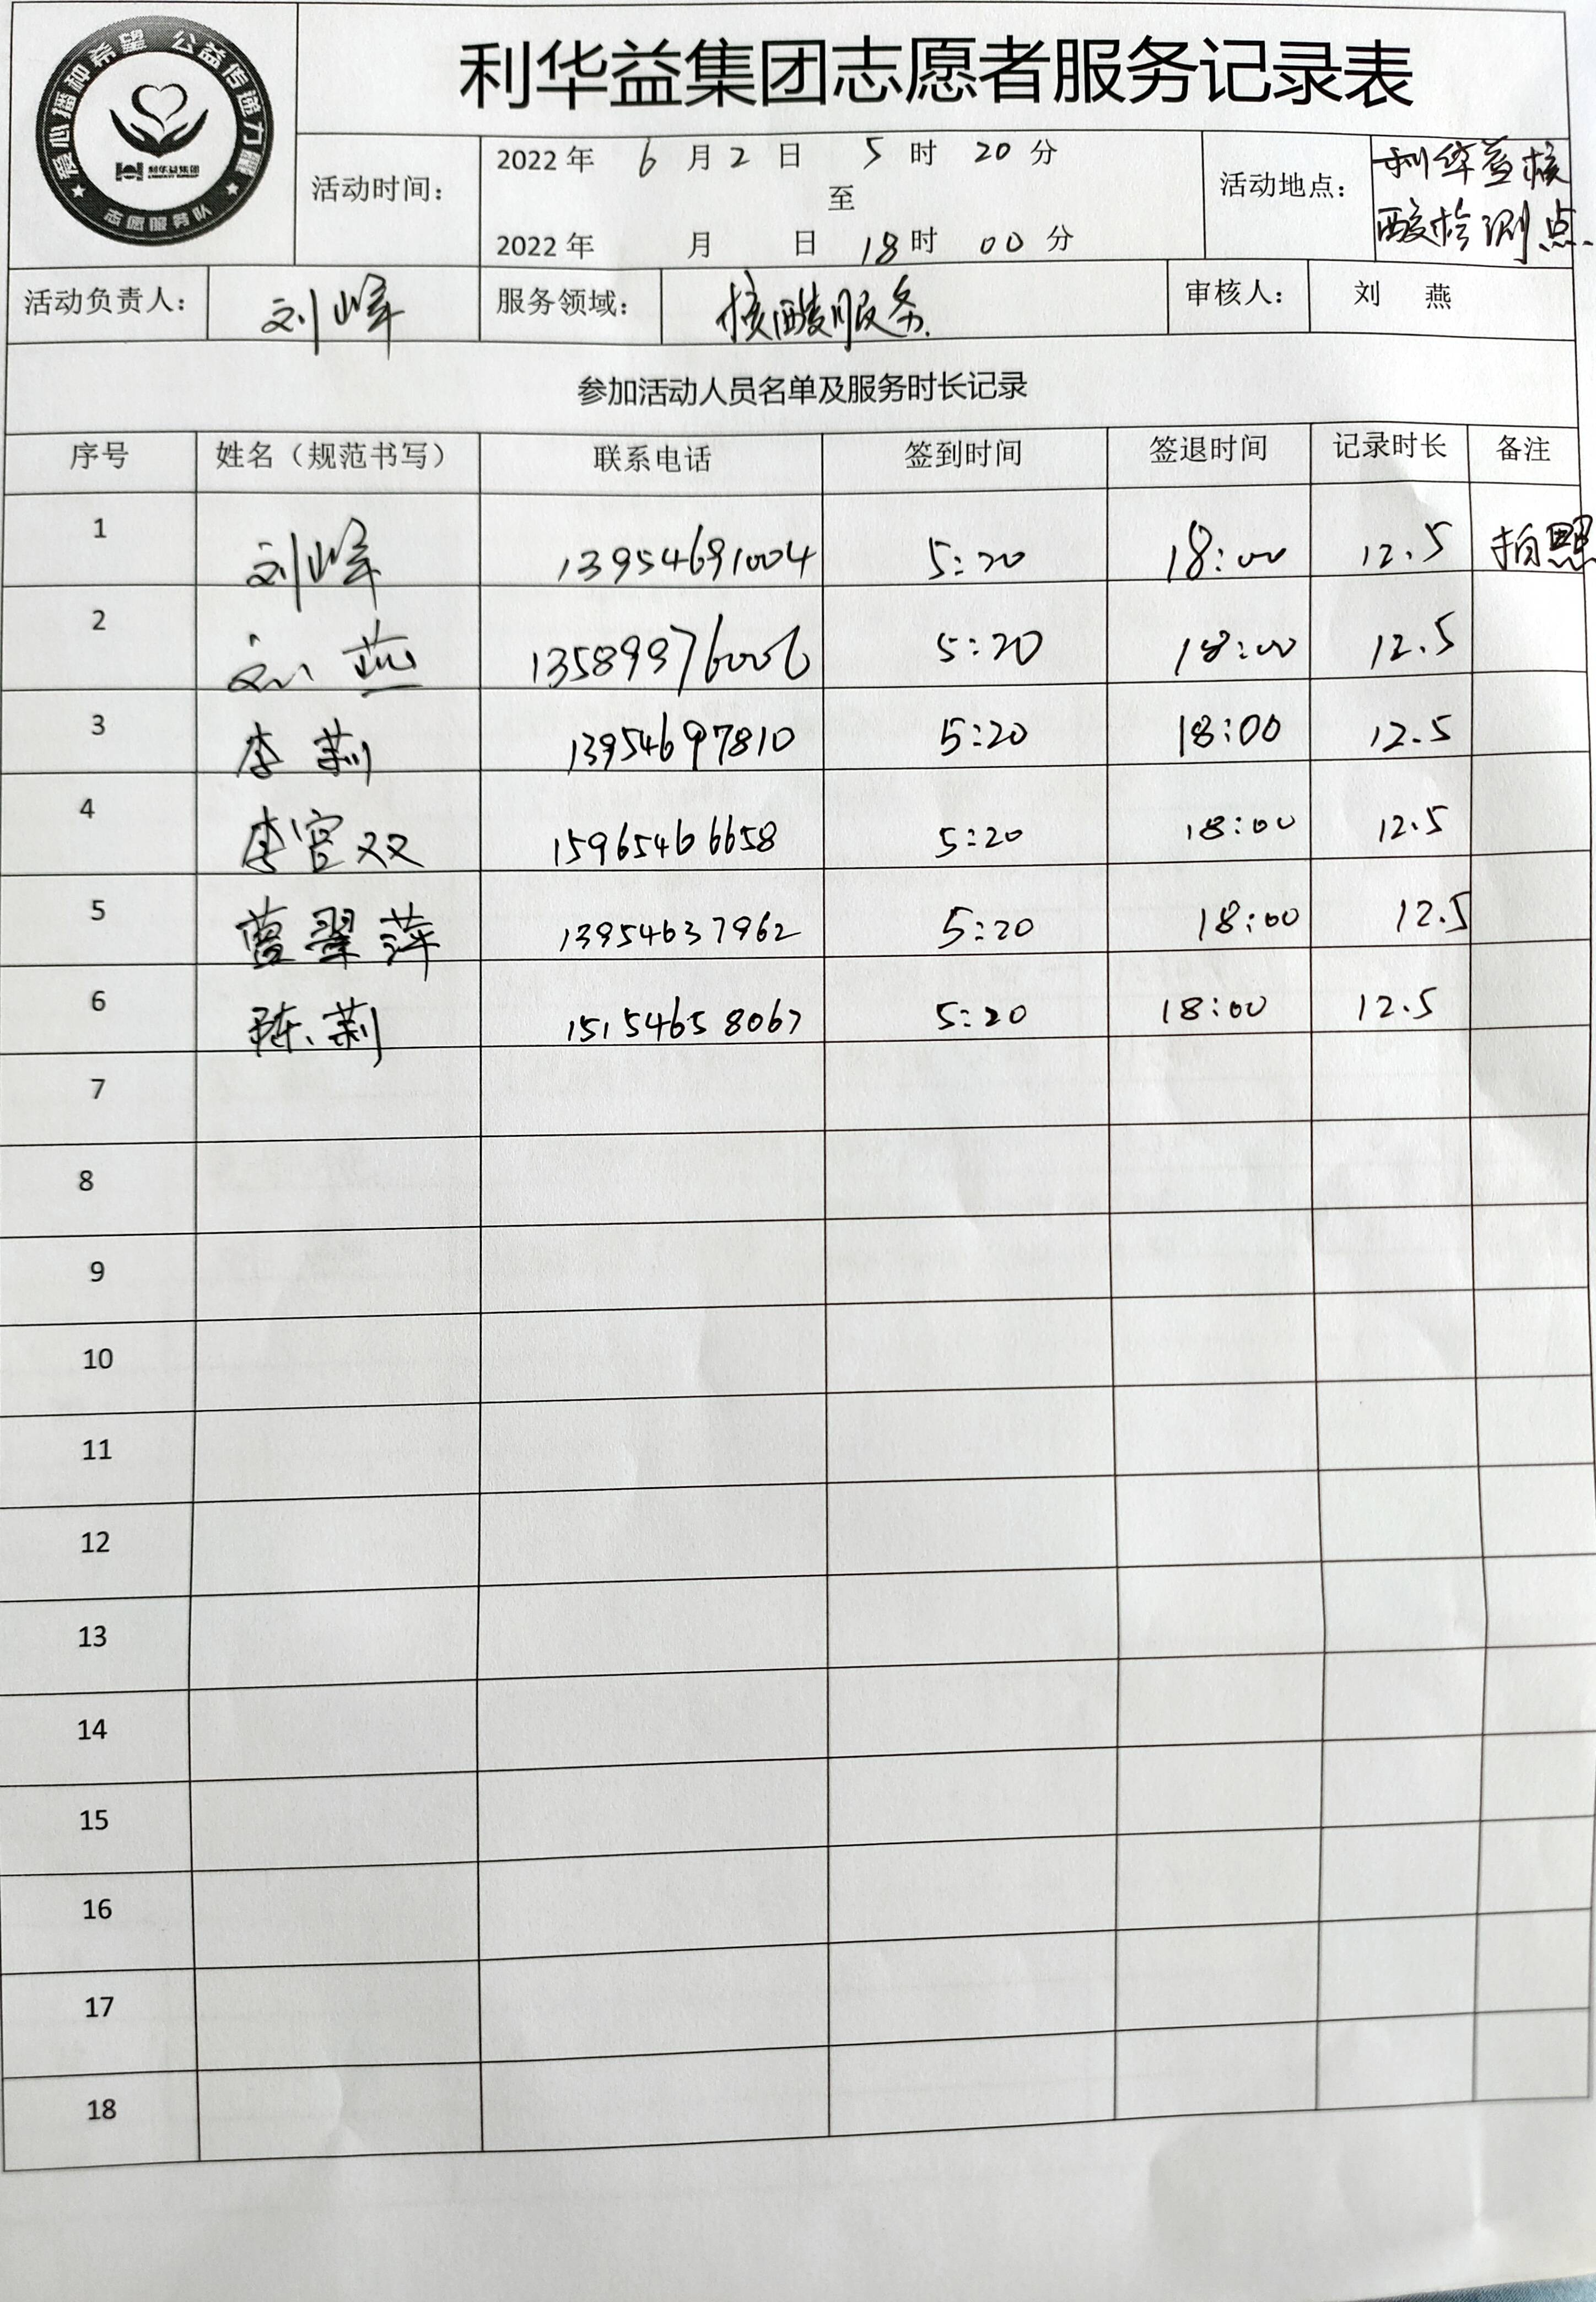 爱心播种希望 公益传递力量
利华益集团
志愿服务队
利华益集团志愿者服务记录表
活动时间： 2022年 6 月 2 日 5 时 20 分
至
2022年 月 日 18 时 00 分
活动地点： 利华益核
酸检测点
活动负责人： 刘峰 服务领域： 核酸服务 审核人： 刘 燕
参加活动人员名单及服务时长记录
序号 姓名（规范书写） 联系电话 签到时间 签退时间 记录时长 备注
1 刘峰 13954691004 5:20 18:00 12.5 拍照
2 刘燕 13589976006 5:20 18:00 12.5
3 李莉 13954697810 5:20 18:00 12.5
4 李官双 15965466658 5:20 18:00 12.5
5 曹翠萍 13954637962 5:20 18:00 12.5
6 陈莉 15154658067 5:20 18:00 12.5
7
8
9
10
11
12
13
14
15
16
17
18